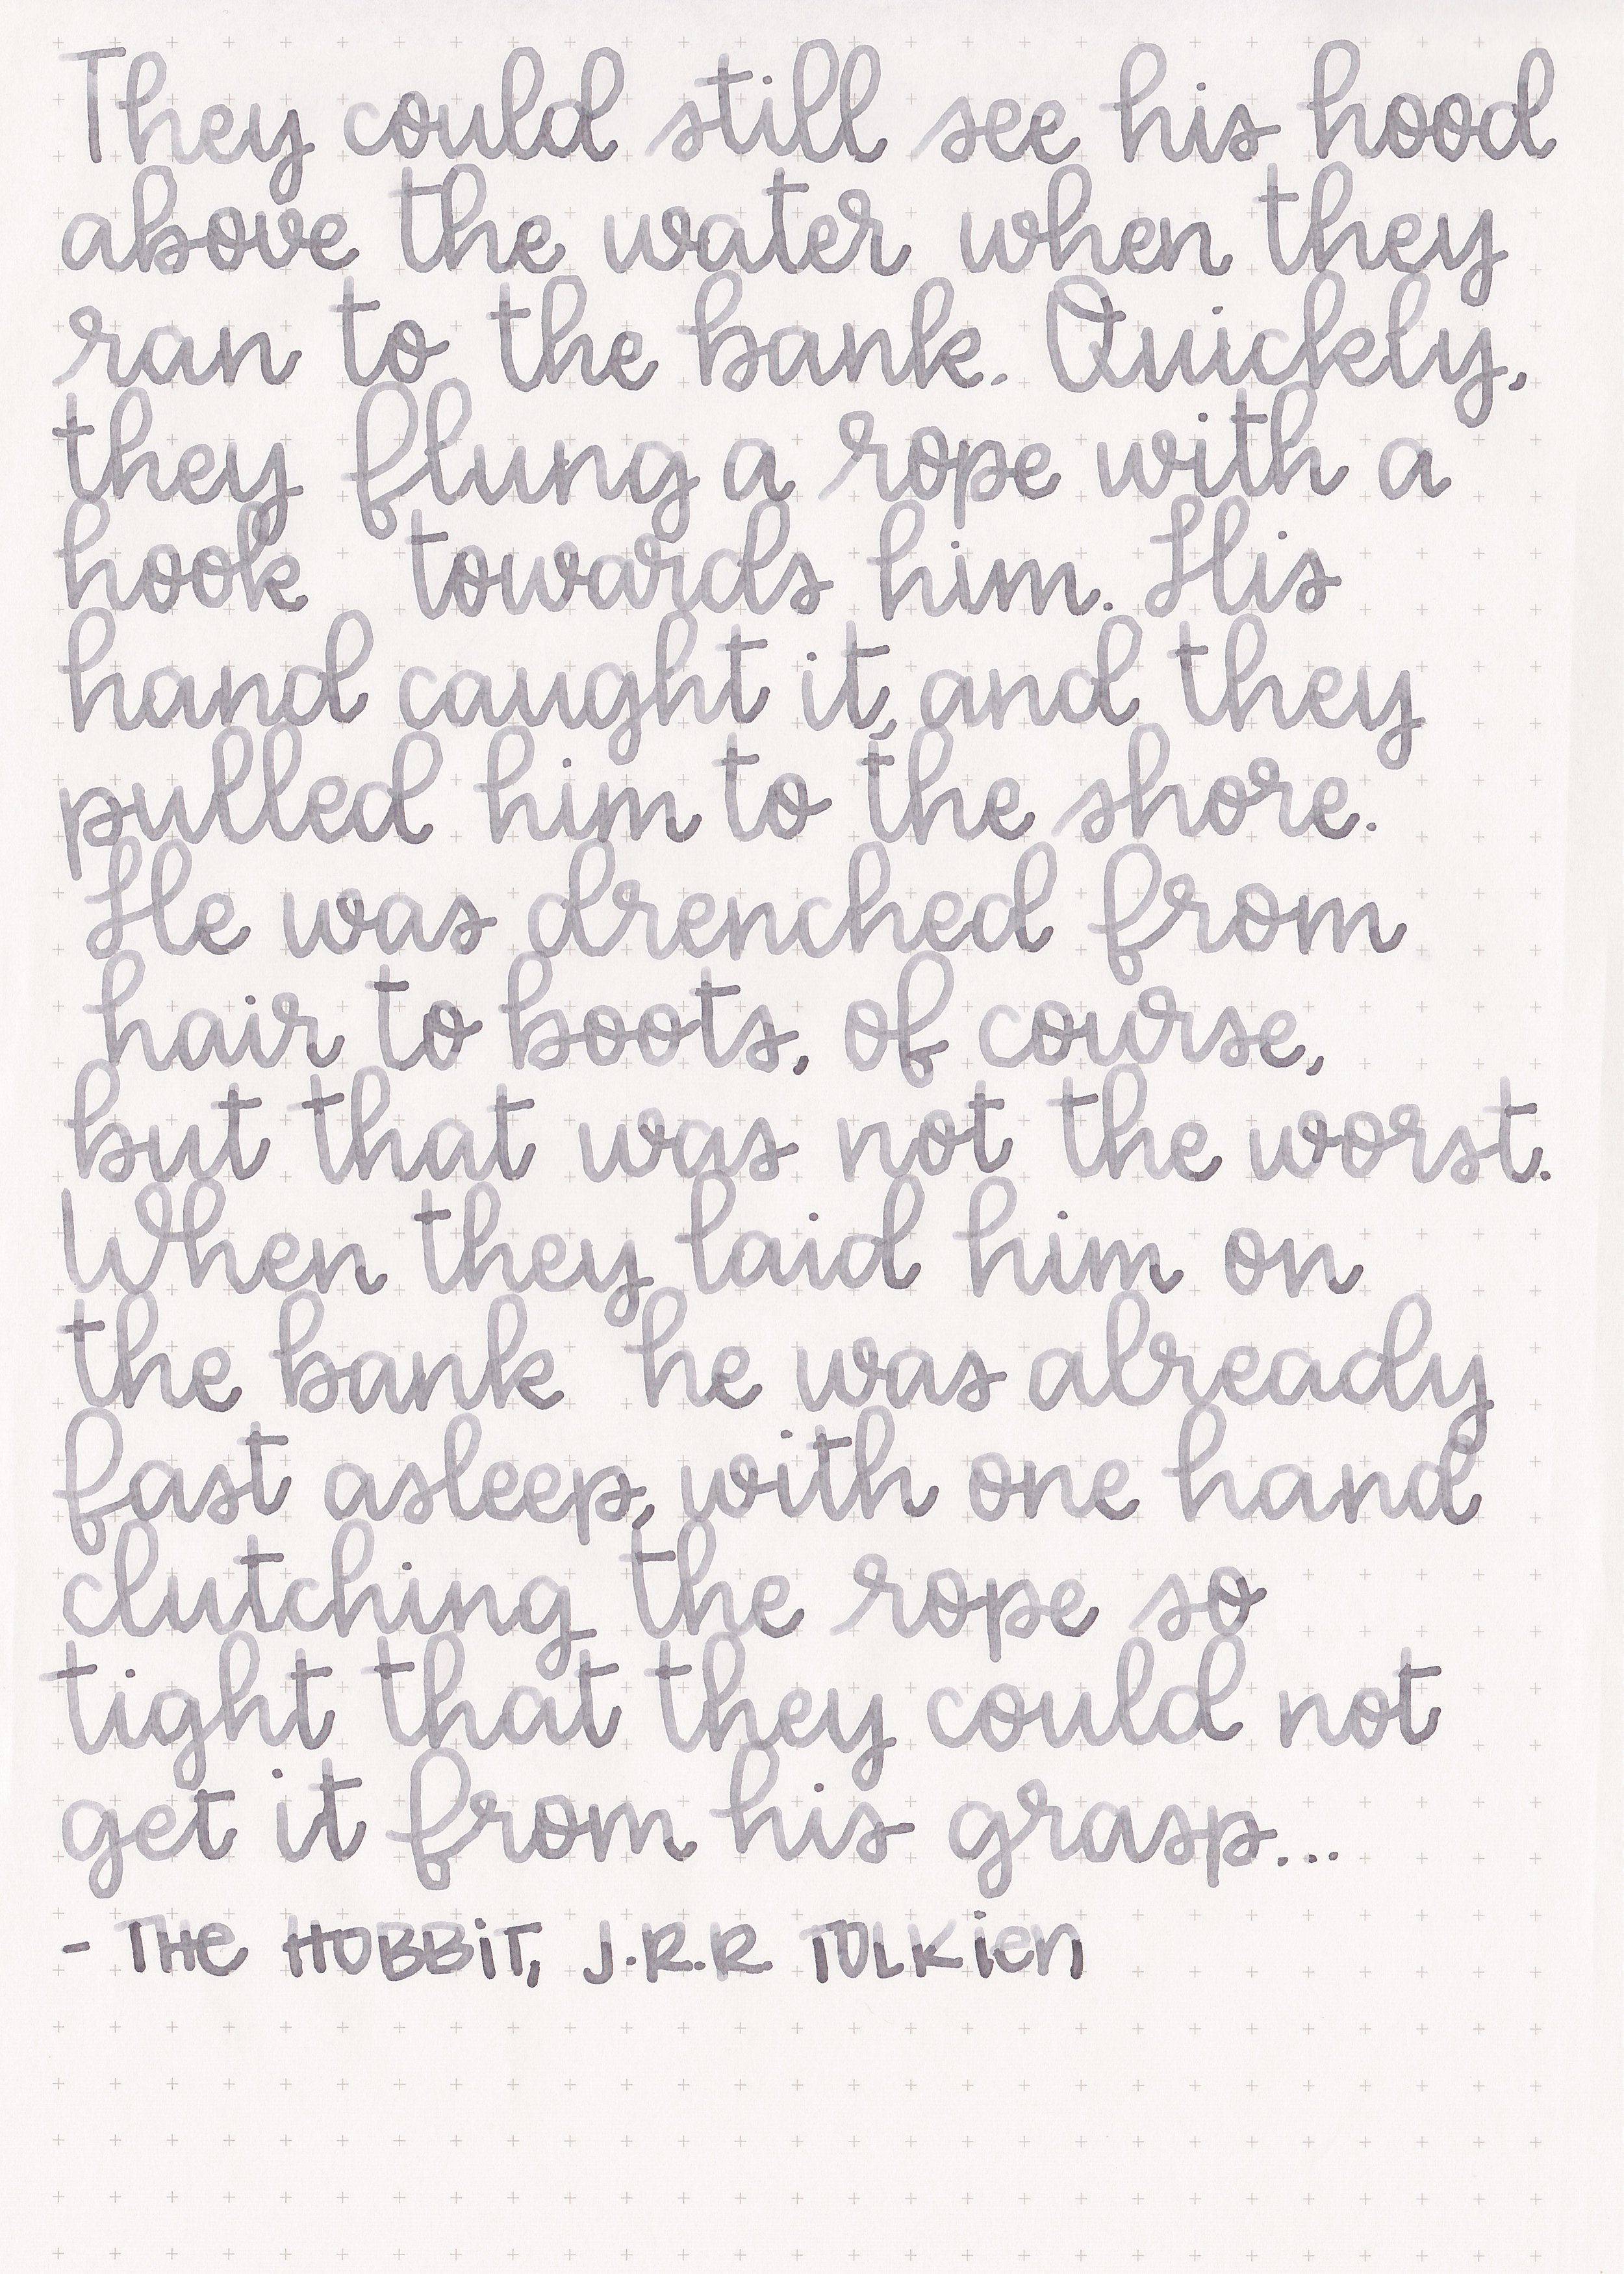 They could still see his hood
above the water when they
ran to the bank. Quickly,
they flung a rope with a
hook towards him. His
hand caught it, and they
pulled him to the shore.
He was drenched from
hair to boots, of course,
but that was not the worst.
When they laid him on
the bank he was already
fast asleep, with one hand
clutching the rope so
tight that they could not
get it from his grasp...
- THE HOBBiT, J.R.R. TOLKien